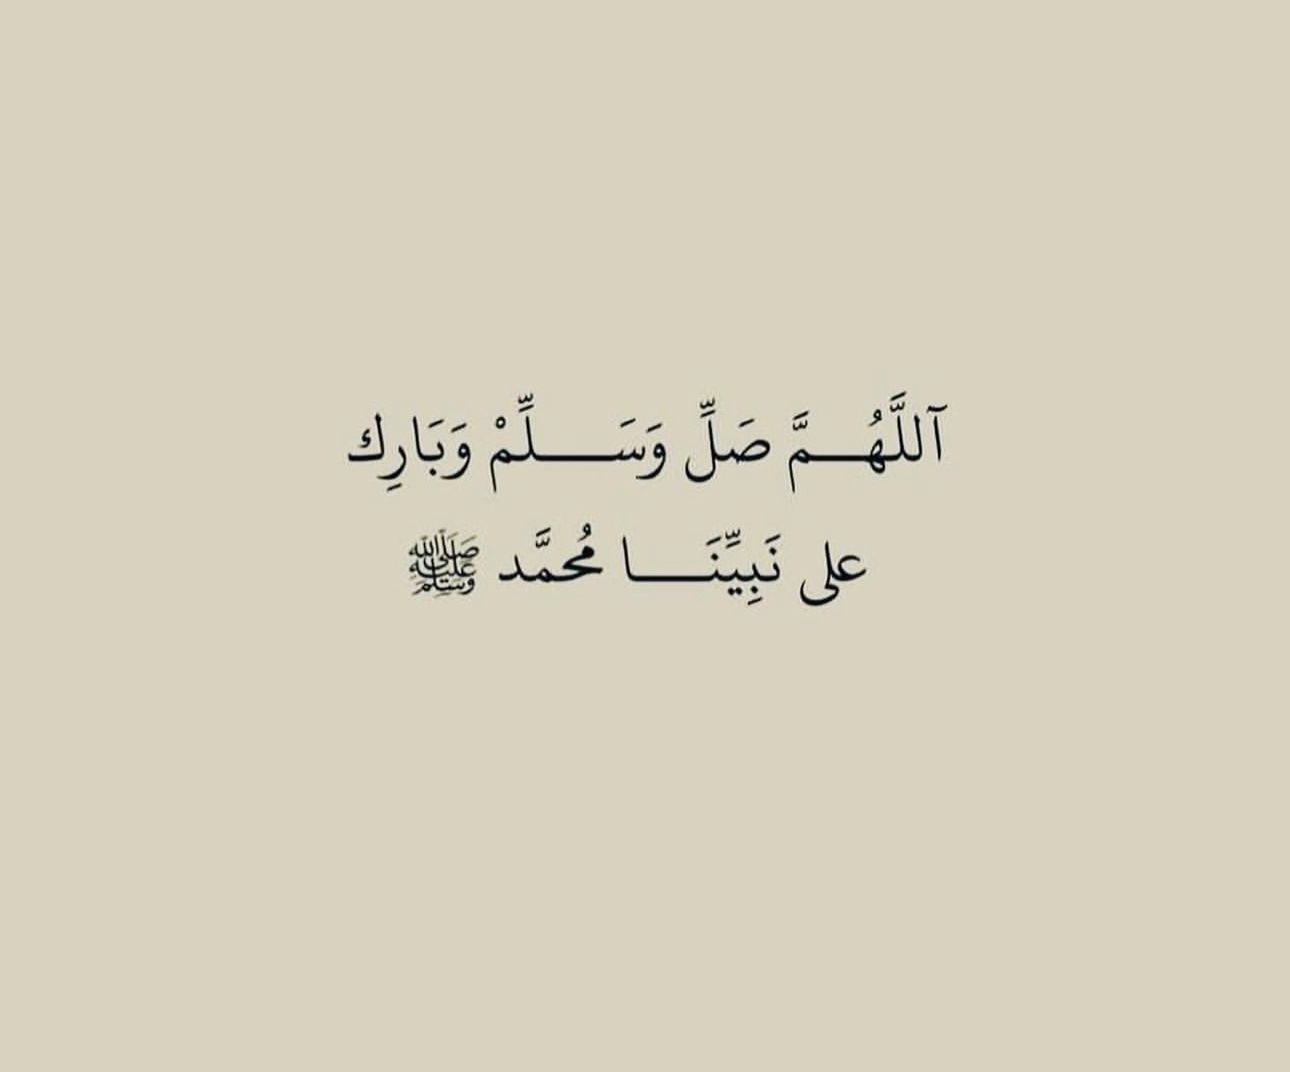 آللَّهُـــمَّ صَلِّ وَسَـــــلِّمْ وَبَارِك
على نَبِيِّنَـــــا مُحمَّد ﷺ